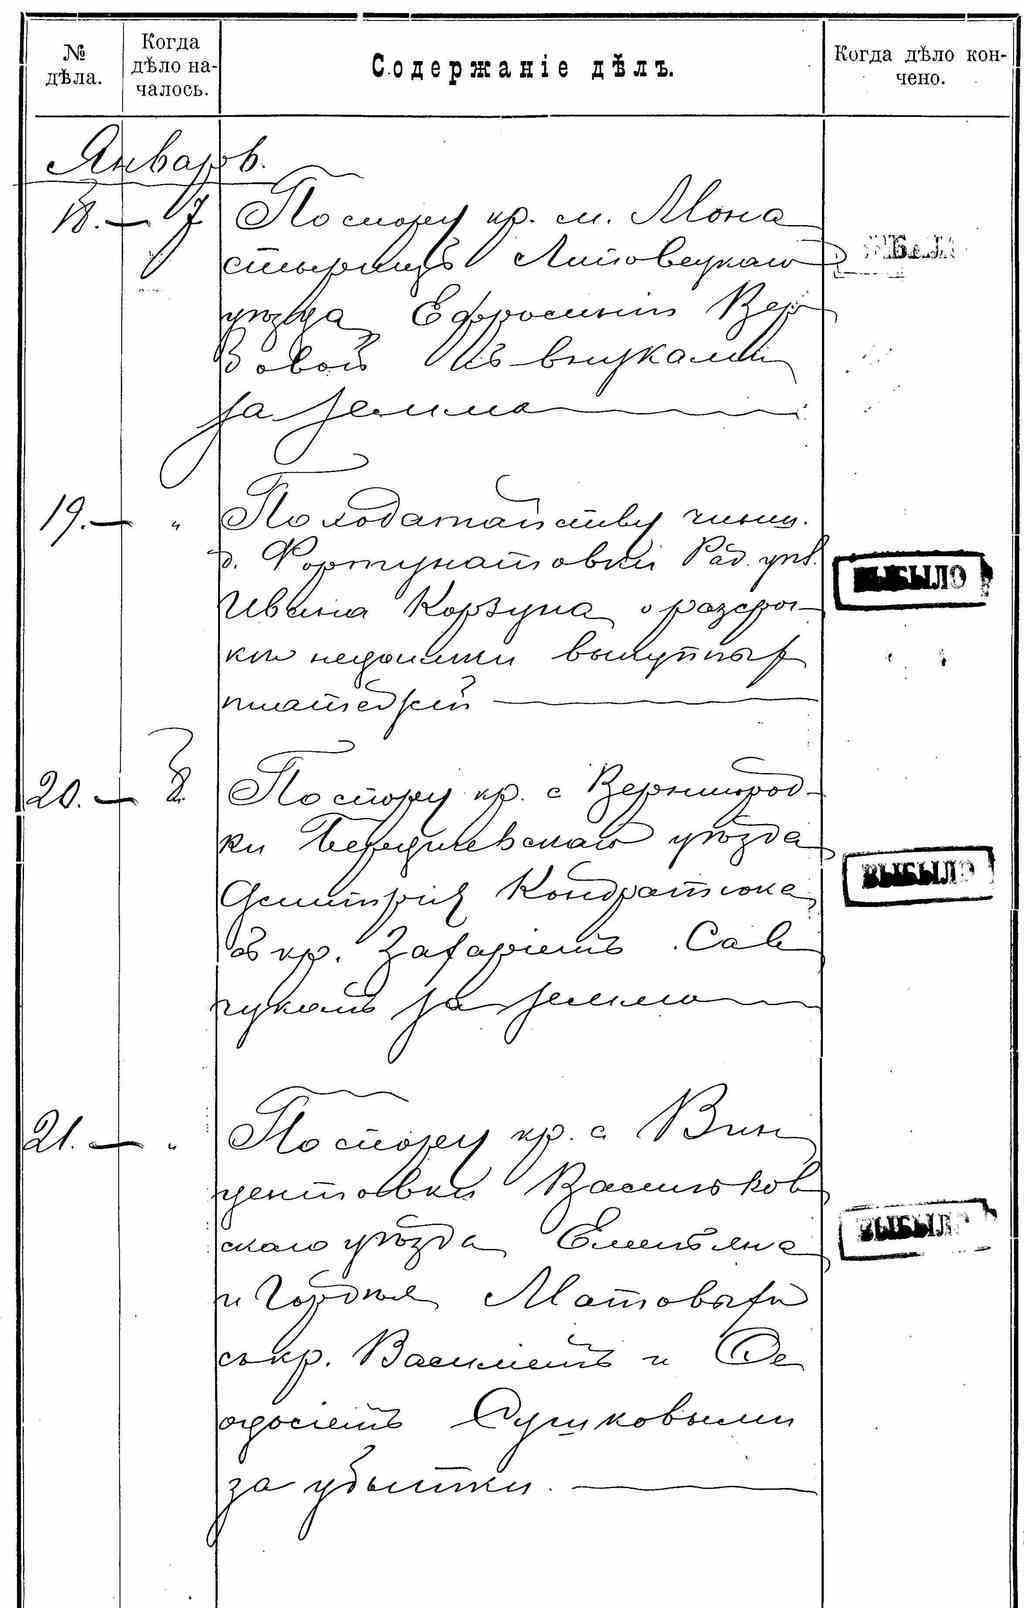 № дѣла.
Когда дѣло на-
чалось.
Содержаніе дѣлъ.
Когда дѣло кон-
чено.
Январь.
18. — 7 По спору кр. м. Мона
стырищъ Липовецкаго
уѣзда Ефросиніи Вер
бовой съ внуками
за землю
ВЫБЫЛО
19. — " По ходатайству чинш.
д. Фортунатовки Рад. уѣз.
Ивана Корзуна о разсроч
кѣ недоимки выкупныхъ
платежей
ВЫБЫЛО
20. — 8 По спору кр. с Вернигород-
ки Бердичевскаго уѣзда
Дмитрія Кондратюка
съ кр. Захаріемъ Сав
чукомъ за землю
ВЫБЫЛО
21. — " По спору кр. с Вин
центовки Васильков
скаго уѣзда Емельяна
и Гордѣя Матовыхъ
съ кр. Василіемъ и Ѳе
одосіемъ Сушковыми
за убытки.
ВЫБЫЛО